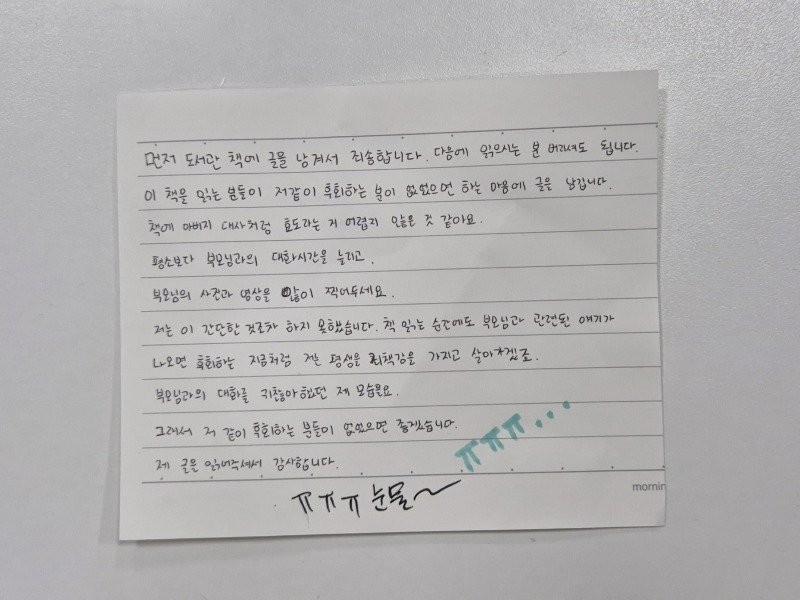 먼저 도서관 책에 글을 남겨서 죄송합니다. 다음에 읽으시는 분 버려셔도 됩니다.
이 책을 읽는 분들이 저같이 후회하는 분이 없었으면 하는 마음에 글을 남깁니다.
책에 아버지 대사처럼 효도라는 게 어렵지 않은 것 같아요.
평소보다 부모님과의 대화시간을 늘리고,
부모님의 사진과 영상을 많이 찍어두세요.
저는 이 간단한 것조차 하지 못했습니다. 책 읽는 순간에도 부모님과 관련된 얘기가
나오면 후회하는 지금처럼 저는 평생을 죄책감을 가지고 살아가겠죠.
부모님과의 대화를 귀찮아했던 제 모습을요.
그래서 저 같이 후회하는 분들이 없었으면 좋겠습니다.
ㅠㅠㅠ...
제 글을 읽어주셔서 감사합니다.
mornin
ㅠㅠㅠ 눈물~